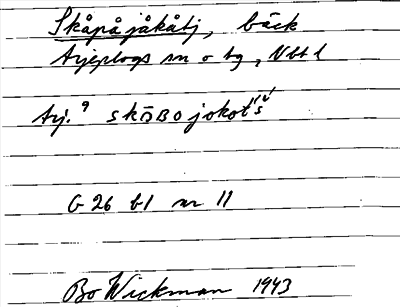 Skåpåjåkåtj, bäck
Arjeplogs sn o tg, Nbt l
Arj. 9 skōʙojokot́ś
G 26 bl nr 11
Bo Wickman 1943